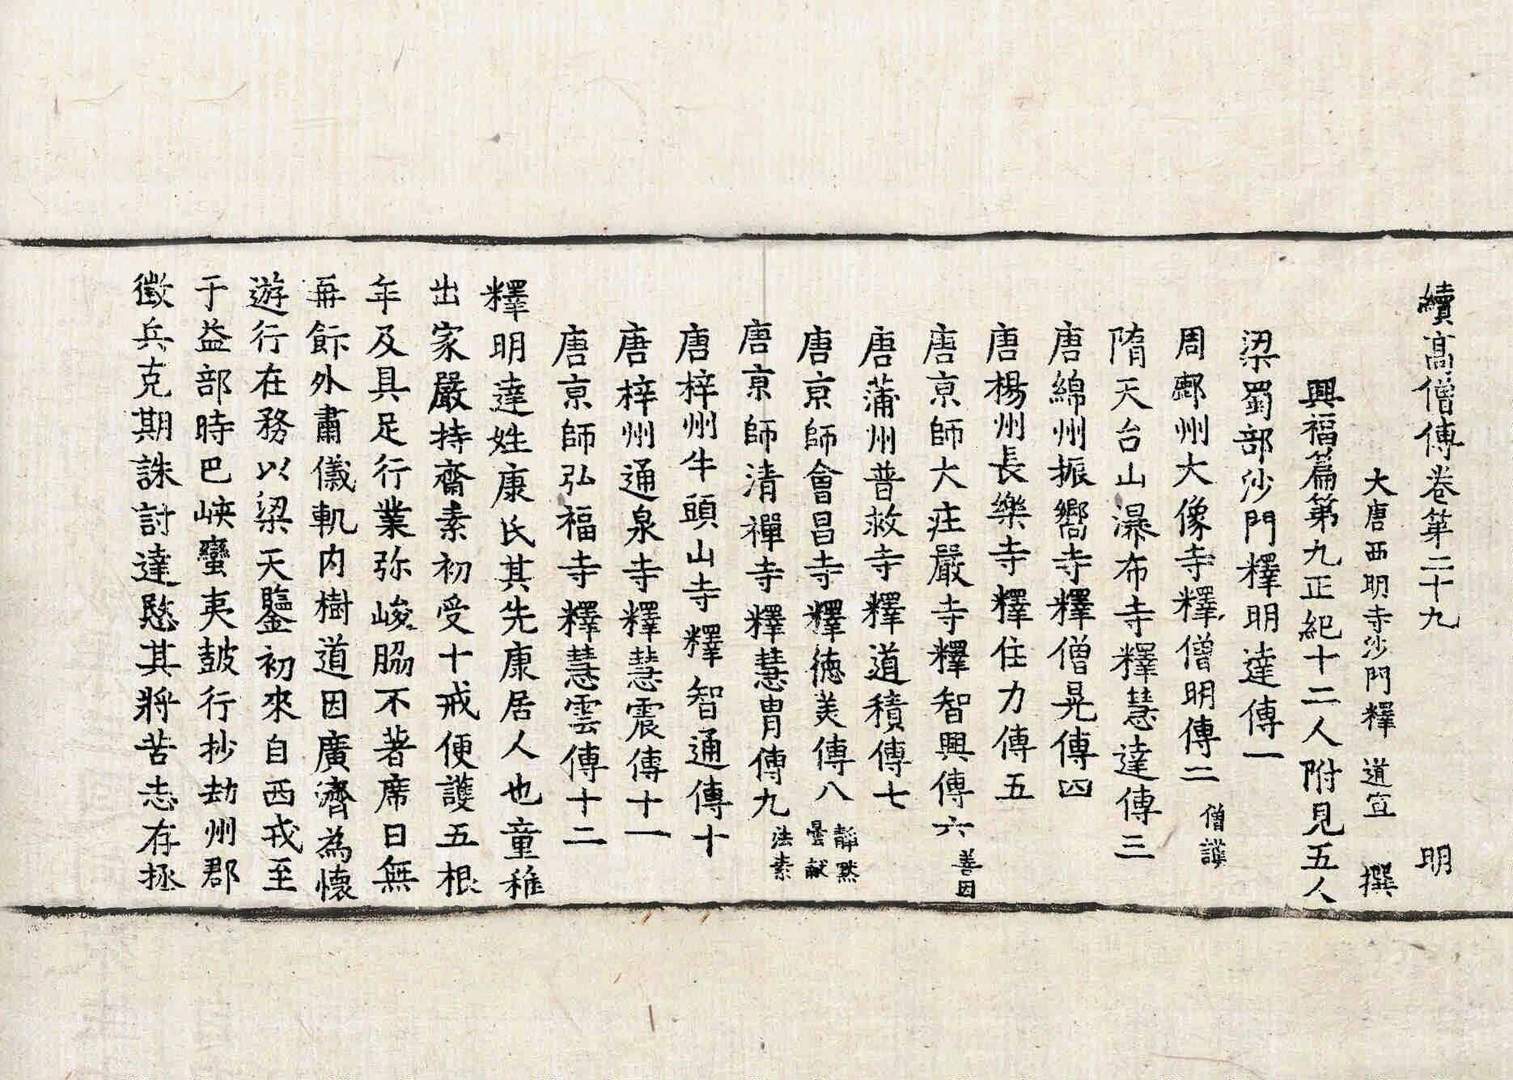 續高僧傳卷第二十九 明
大唐西明寺沙門釋 道宣 撰
興福篇第九正紀十二人附見五人
梁蜀部沙門釋明達傳一
周鄜州大像寺釋僧明傳二 僧護
隋天台山瀑布寺釋慧達傳三
唐綿州振嚮寺釋僧晃傳四
唐楊州長樂寺釋住力傳五
唐京師大莊嚴寺釋智興傳六 善因
唐蒲州普救寺釋道積傳七
唐京師會昌寺釋德美傳八 靜默 曇獻
唐京師清禪寺釋慧胄傳九 法素
唐梓州牛頭山寺釋智通傳十
唐梓州通泉寺釋慧震傳十一
唐京師弘福寺釋慧雲傳十二
釋明達姓康氏其先康居人也童稚
出家嚴持齋素初受十戒便護五根
年及具足行業弥峻脇不著席日無
再飰外肅儀軌内樹道因廣濟為懷
遊行在務以梁天鑒初來自西戎至
于益部時巴峽蠻夷鼓行抄劫州郡
徵兵克期誅討達愍其將苦志存拯